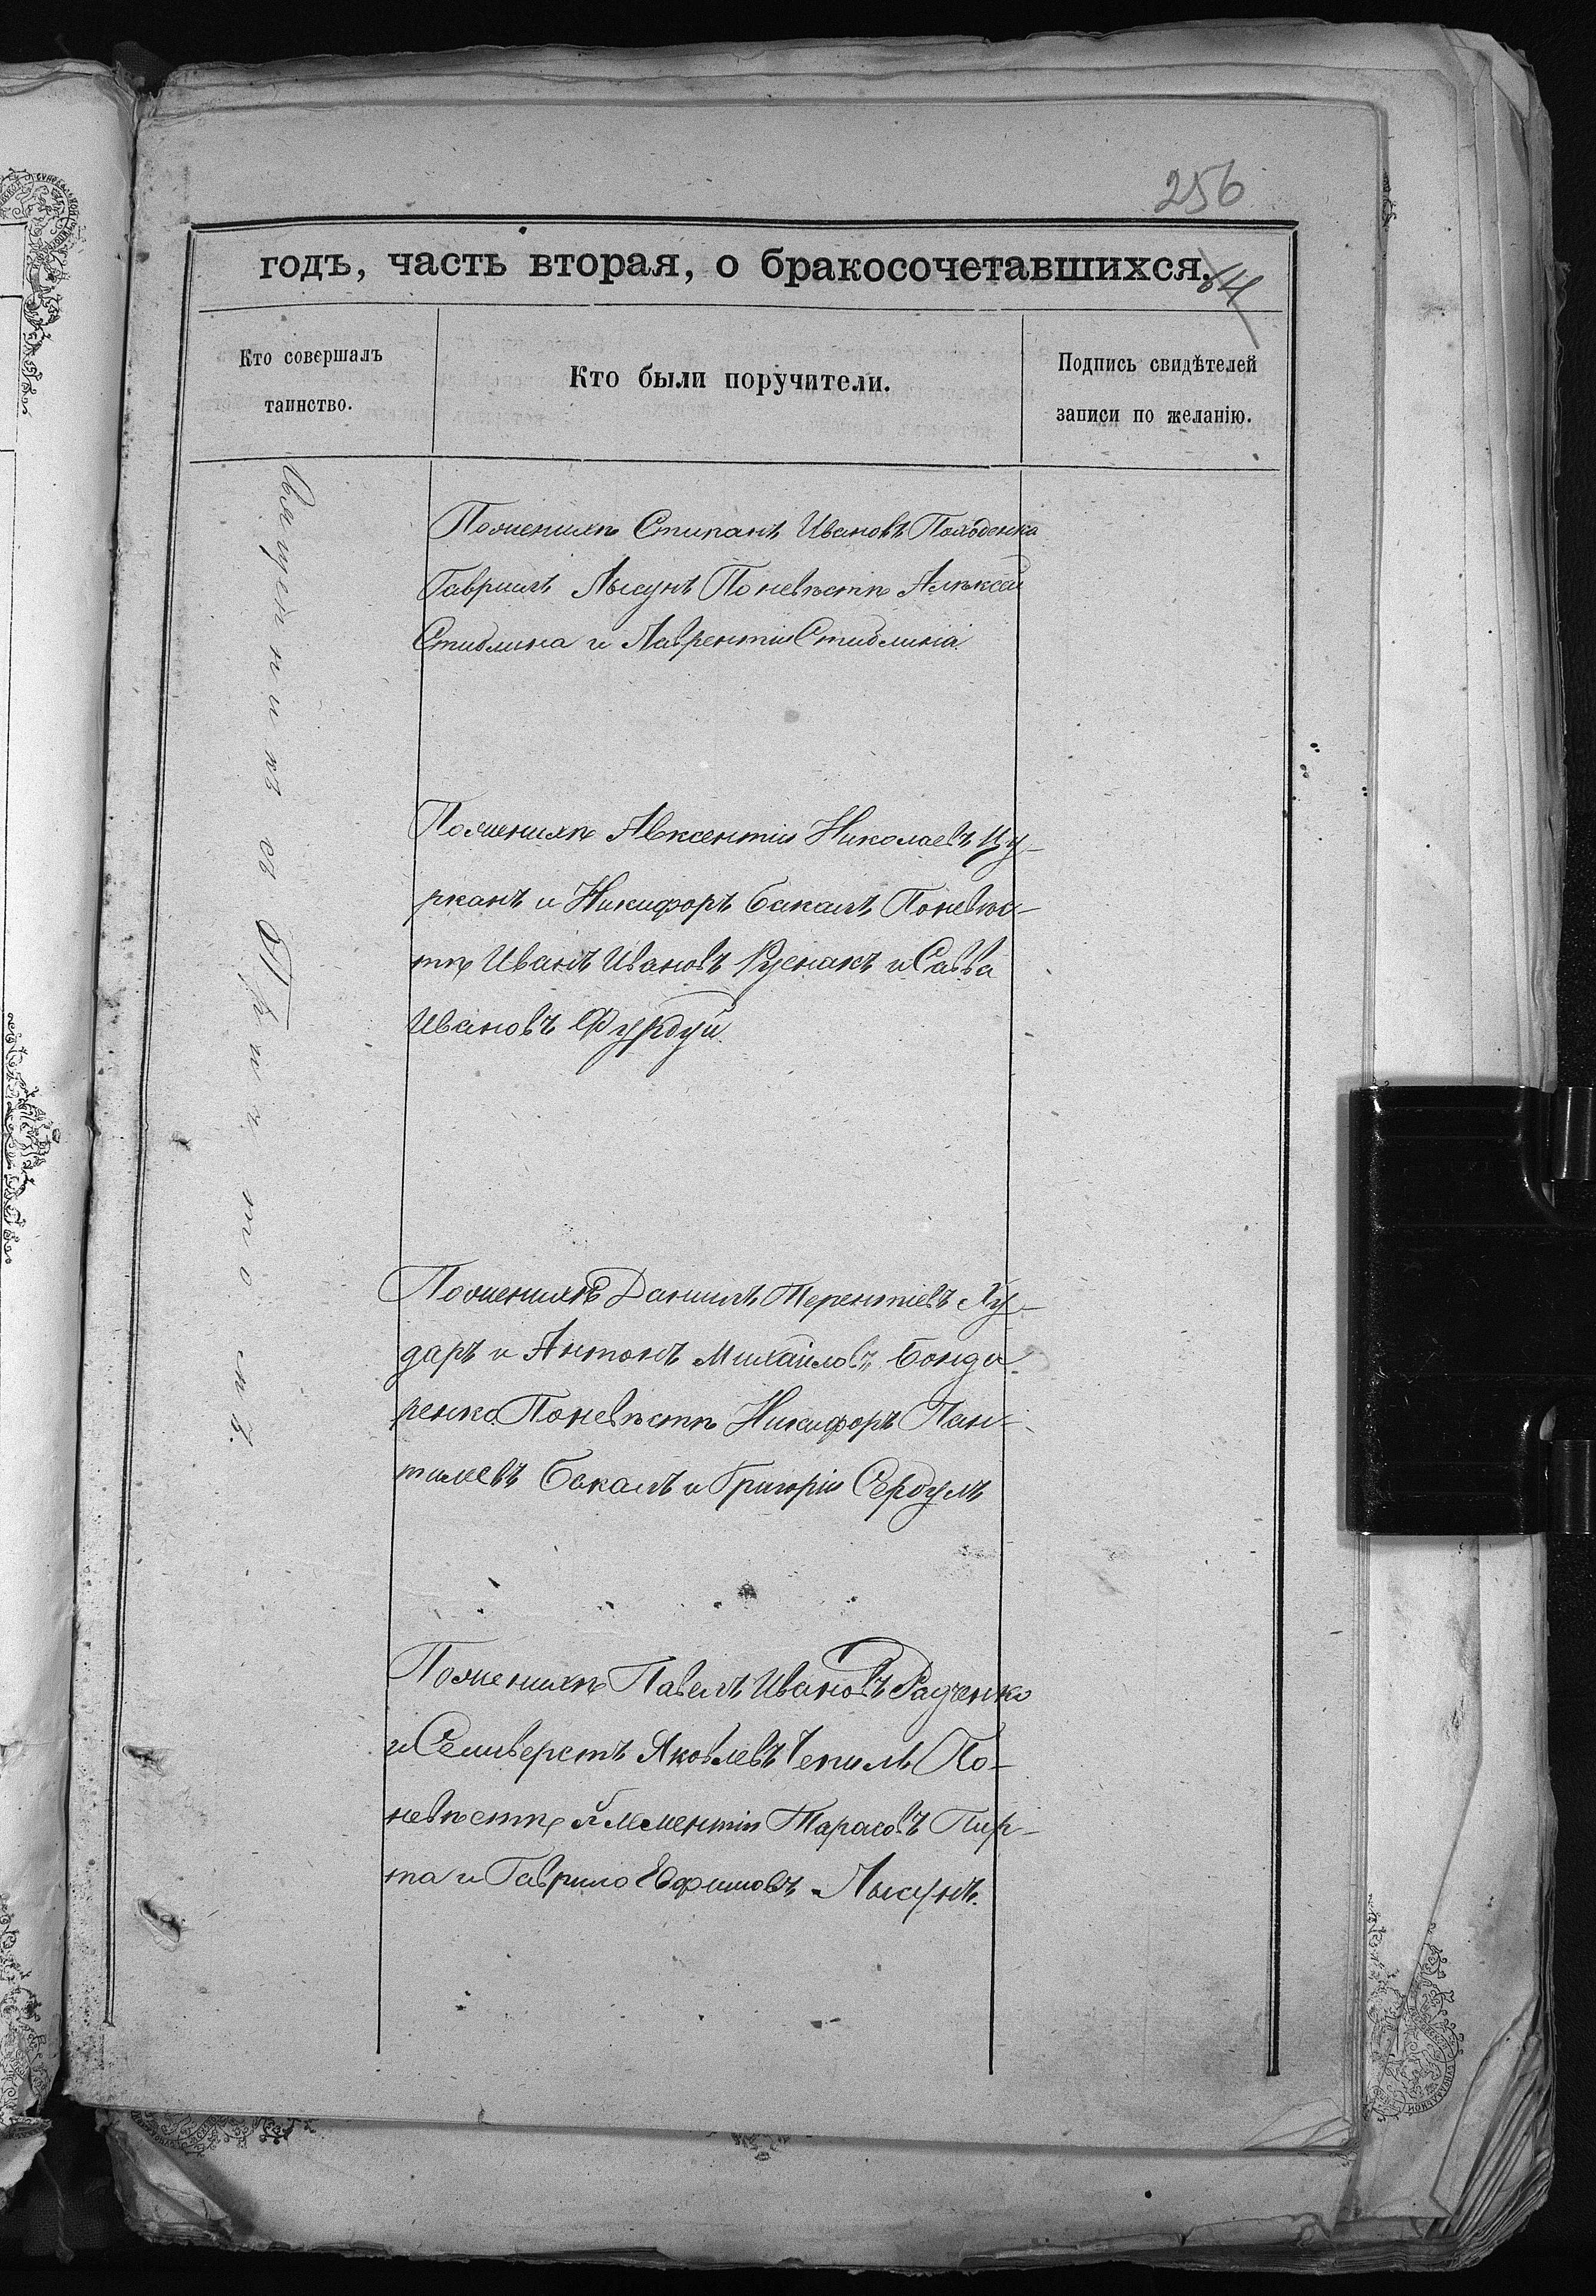 256
годъ, часть вторая, о бракосочетавшихся.
64
Кто совершалъ
таинство.
Кто были поручители.
Подпись свидѣтелей
записи по желанію.
Священникъ
Поженихѣ Стипанъ Ивановъ
Гавриилъ Лысунъ Поневѣстѣ Алѣксей
и Лаврентій
Поженихѣ Авксентій Николаевъ Цу-
рканъ и Никифоръ Бакалъ Поневѣс-
тѣ Иванъ Ивановъ Руснакъ и Савва
Ивановъ Фурдуй.
Поженихѣ Даниилъ Терентіевъ Ху-
даръ и Антонъ Михайловъ Бонда-
ренко Поневѣстѣ Никифоръ Пан-
тилеевъ Бакалъ и Григорій Сердулъ
Поженихѣ Павелъ Ивановъ Радченко
и Селиверстъ Яковлевъ Чепиль По-
невѣстѣ Клементій Тарасовъ Пир-
та и Гаврило Ефимовъ Лысунъ.